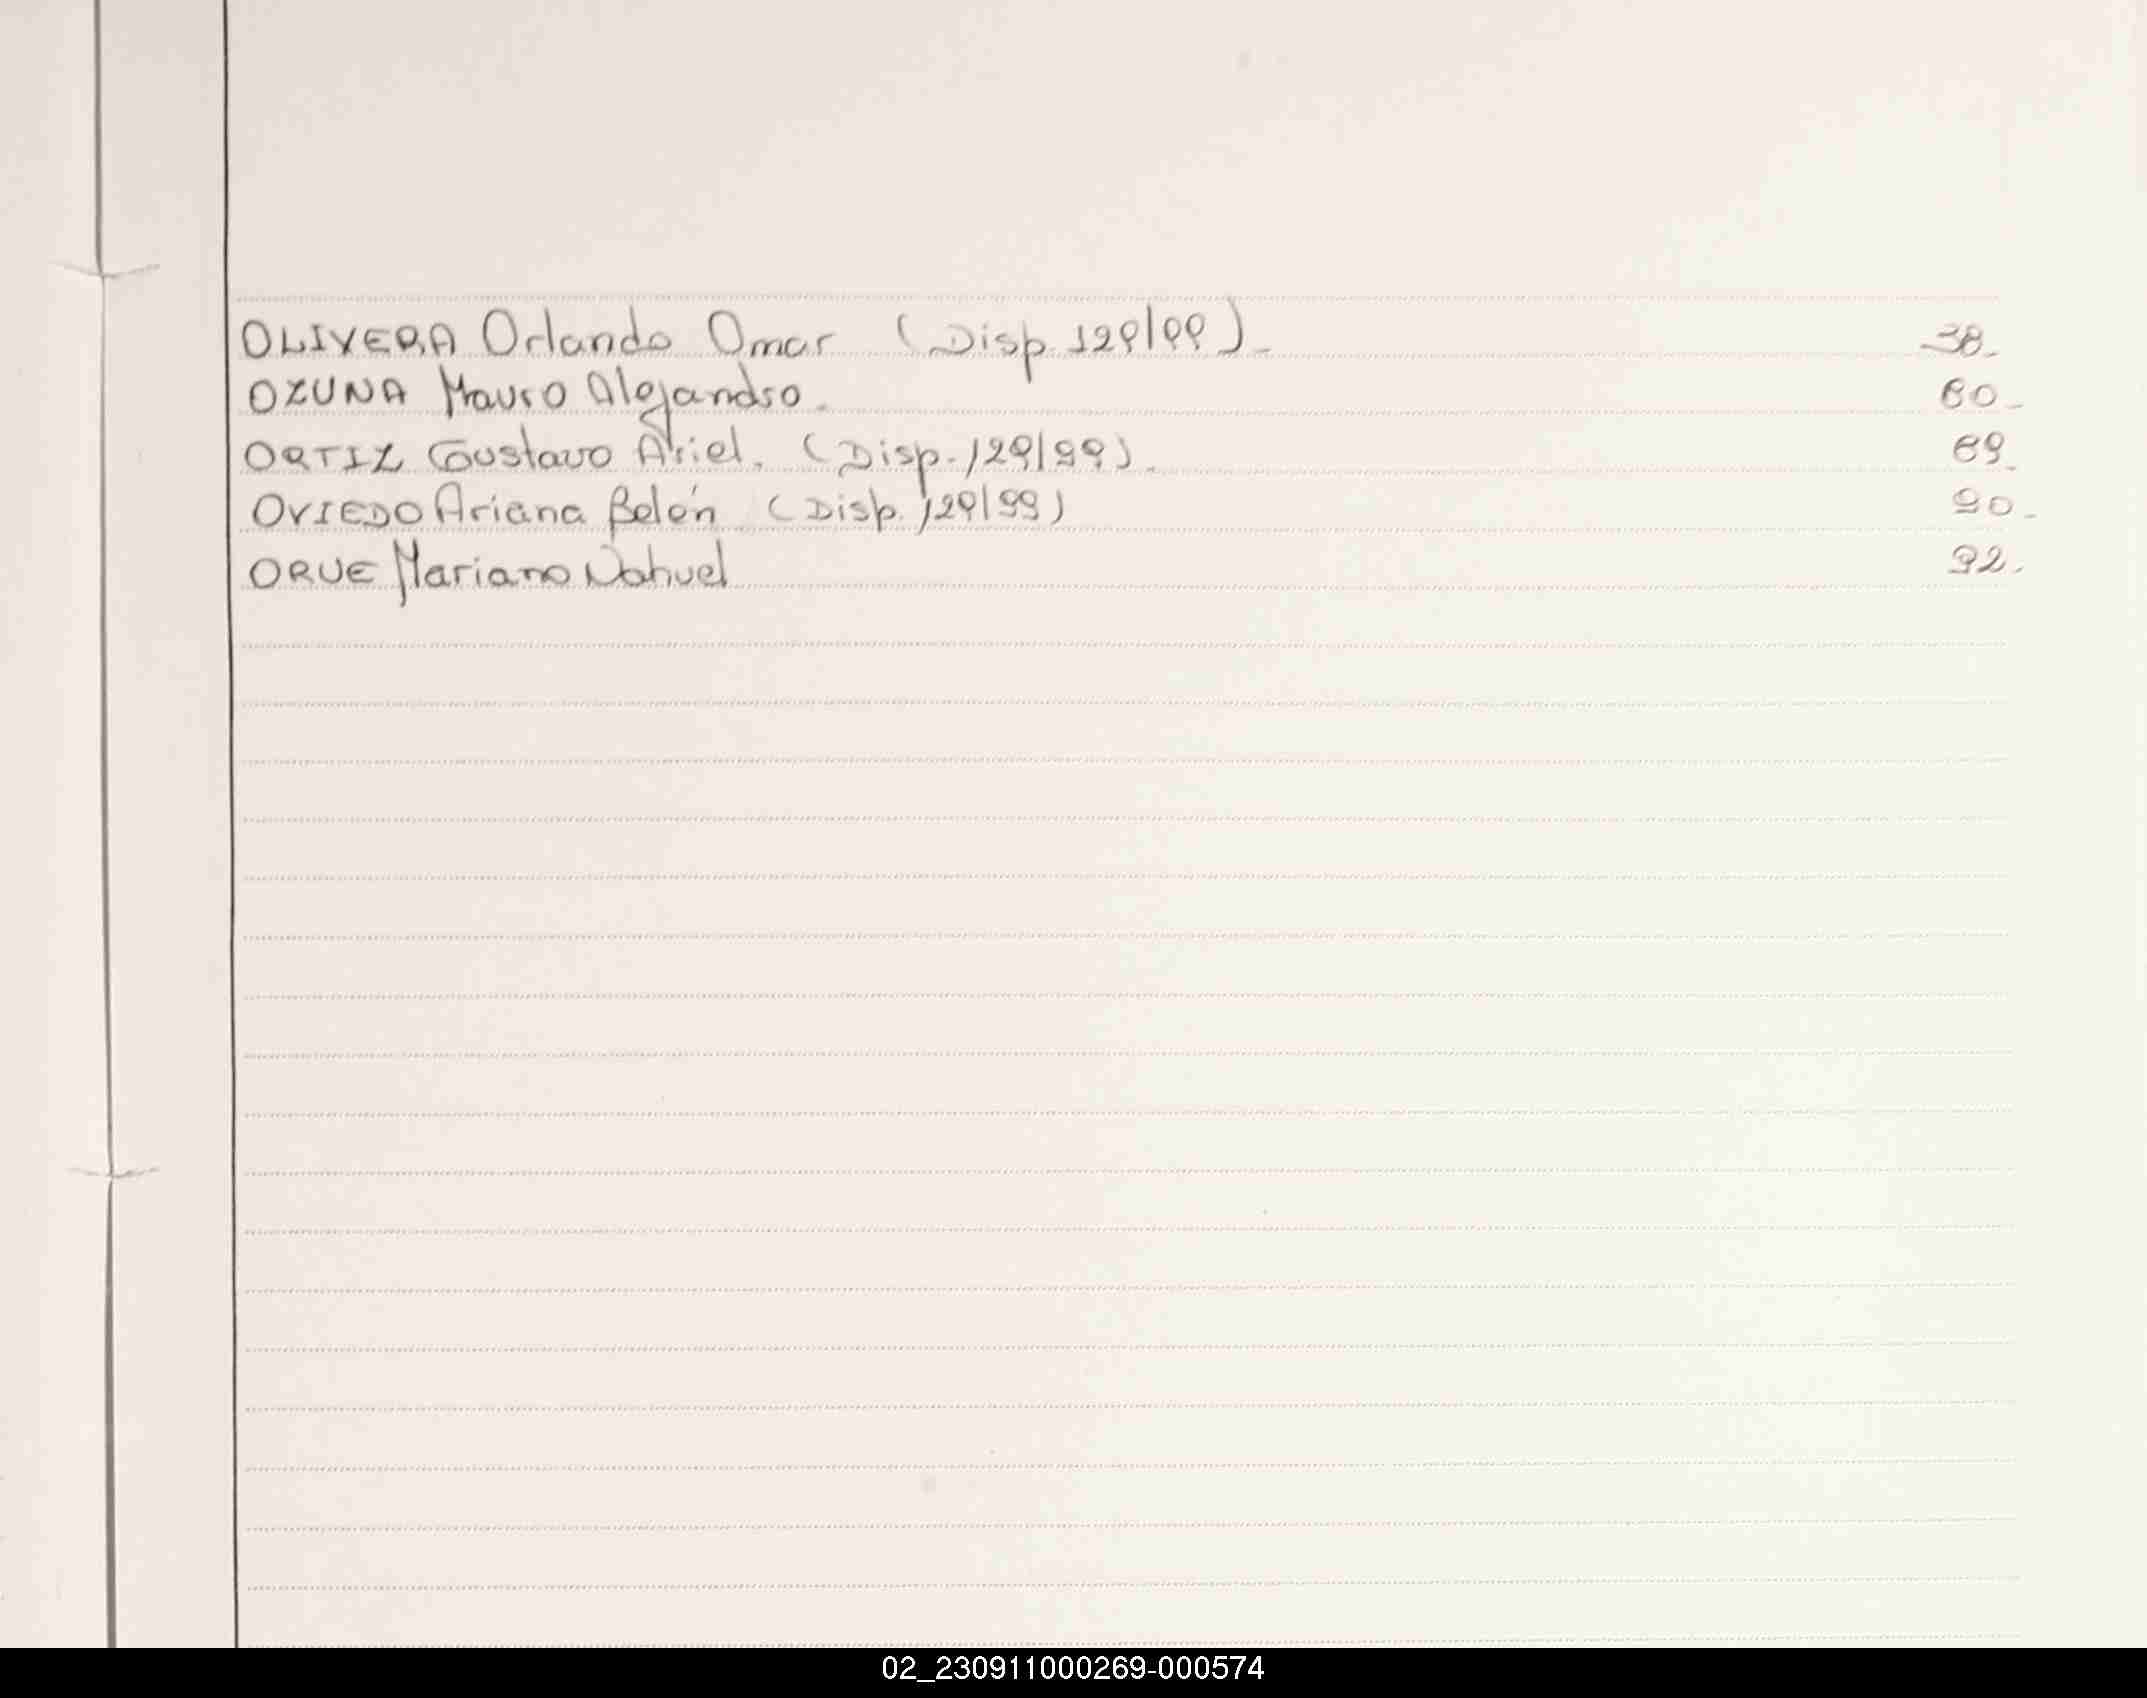 OLIVERA Orlando Omar (Disp. 129/99).- 38.-
OZUNA Mauro Alejandro.- 60.-
ORTIZ Gustavo Ariel. (Disp. 129/99).- 69.-
OVIEDO Ariana Belén (Disp. 129/99) 90.-
ORUE Mariano Nahuel 92.-
02_230911000269-000574